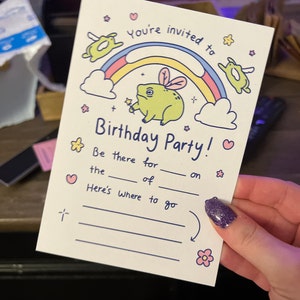 You're invited to
Birthday Party!
Be there for ___ on
the ___ of ___
Here's where to go